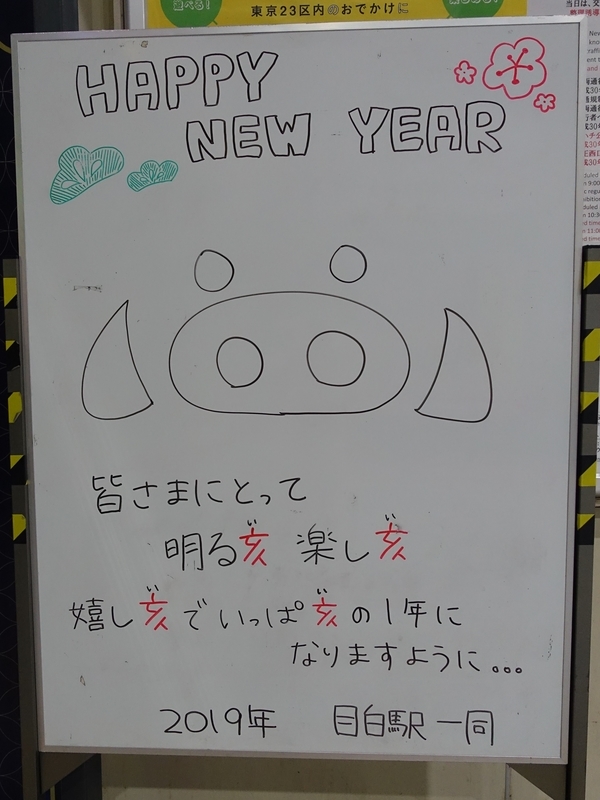 東京23区内のおでかけに
HAPPY
NEW YEAR
皆さまにとって
明る亥 楽し亥
嬉し亥でいっぱ亥の1年に
なりますように...
2019年 目白駅一同